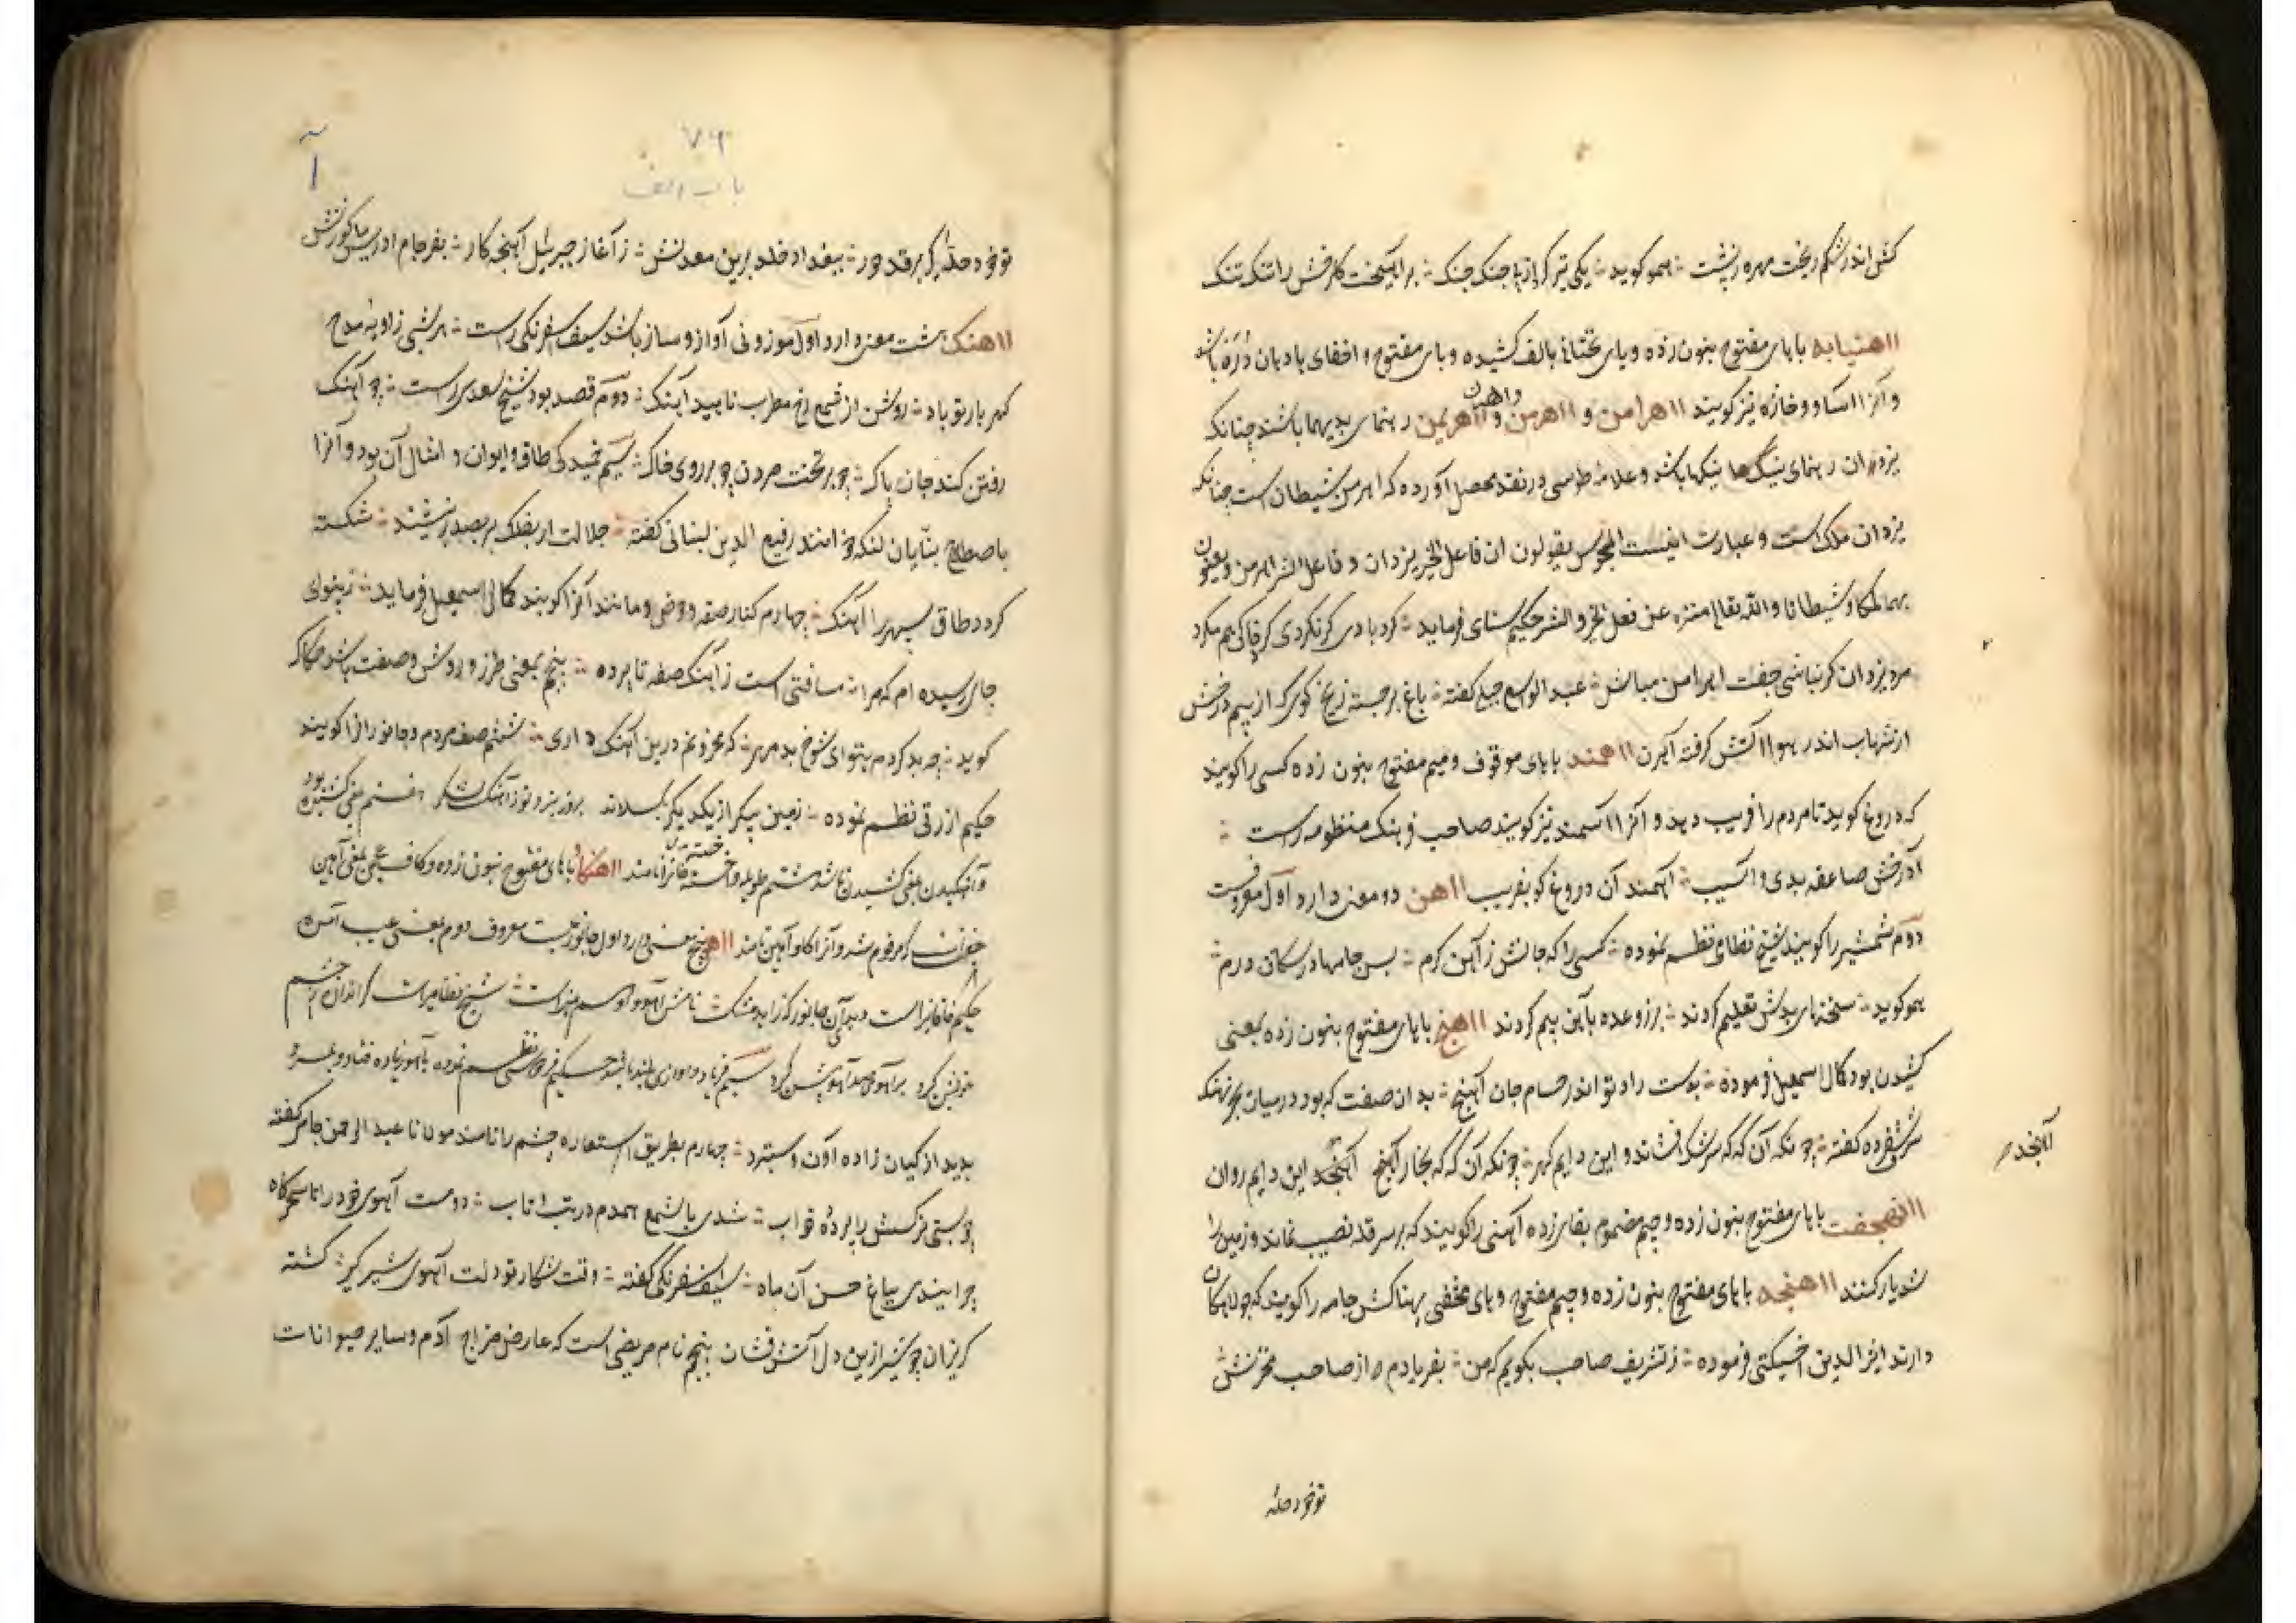 کش اندر شکم ریخت مهره ز پشت ؛ همو گوید ؛ یکی تیر کز از پا جنک جنک ؛ برانگیخت کا رخش را تنک تنک
ااهنیابه باهای مفتوح بنون زده و یای تحتانی بالف کشیده و بای مفتوح و اخفای ها دهان دره باشد
و آنرا اسا و و خازه نیز گویند ااهرامن و ااهرمن و ااهریمن رهنمای بدیها باشند چنانکه
یزدان رهنمای نیکیها باشد و علامه طوسی در نقد محصل آورده که اهرمن شیطان است چنانکه
یزدان ملک است و عبارت اینست المجوس یقولون ان فاعل الخیر یزدان و فاعل الشر اهرمن و یعنون
بهما ملکا و شیطانا والله تعالی منزه عن فعل الخیر والشر حکیم سنای فرماید ؛ کرد بادی کرنکردی کرد خاکی هم مکرد
مرد یزدان کر نباشی جفت اهرامن مباش ؛ عبد الواسع جبلی گفته ؛ باغ برجسته ز یخ گوی که از بیم درخش
از شهاب اندر هوا آتش گرفته آهرن ااهمند باهای موقوف و میم مفتوح بنون زده کسی را گویند
که دروغ گوید تا مردم را فریب دهد و آنرا آسمند نیز گویند صاحب فرهنک منظومه راست ؛
آدرخش صاعقه بدی و آسیب ؛ آهمند آن دروغ گو بفریب ااهن دو معنی دارد اول معروفست
دوم شمشیر را گویند شیخ نظامی نظم نموده ؛ کسی را که جانش ز آهن گرم ؛ بس جامها در سکان درم ؛
همو گوید ؛ سخنهای بدش تعلیم کردند ؛ بزر وعده بآهن بیم کردند ااهنج باهای مفتوح بنون زده بمعنی
کشیدن بود کمال اسمعیل فرموده ؛ بوست راد تو اندر حسام جان آهنج ؛ بدان صفت که بود در میان بحر نهنک
شرف شفروه گفته ؛ چونکه آن گه که سرشک افشاند و این دایم گهر ؛ چونکه آن گه که بخار آهنج آهنجد این دایم روان
آهنجد
ااهنجفت باهای مفتوح بنون زده و جیم مضموم بفای زده آهنی را گویند که بر سر قلبه نصب نمایند و زمین را
شدیار کنند ااهنجه باهای مفتوح بنون زده و جیم مفتوح و های مخفی پهناکش جامه را گویند که جولاهکان
دارند اثیر الدین اخسیکتی فرموده ؛ ز تشریف صاحب بگویم که من ؛ بفریادم از صاحب مخزنش
تو خود حله
۷۶
باب الف
آ
تو خود حله گیر بر قد حور ؛ ببغداد خلد برین معدنش ؛ ز آغاز جبرئیل آهنجه کار ؛ بفرجام ادریس ماکو زنش
ااهنک هشت معنی دارد اول موزونی آواز و ساز باشد سیف اسفرنکی راست ؛ هر شبی زاویه مدح
گهر بار تو باد ؛ روشن از شمع رخ مطرب ناهید آهنک ؛ دوم قصد بود شیخ سعدی راست ؛ چو آهنک
رفتن کند جان پاک ؛ چه بر تخت مردن چه بر روی خاک ؛ سیم خمیدگی طاق و ایوان و امثال آن بود و آنرا
باصطلاح بنایان لنکه خوانند رفیع الدین لبنانی گفته ؛ جلالت ار بفلک بر بصدر بنشیند ؛ شکسته
گردد طاق سپهر را آهنک ؛ چهارم کنار صفه و حوض و مانند آنرا گویند کمال اسمعیل فرماید ؛ ز بینوای
جای رسیده ام که مرا ؛ مسافتی است ز آهنک صفه تا پرده ؛ پنجم بمعنی طرز و روش و صفت باشد چنانکه
گوید ؛ چه بد کردم بتو ای شوخ بد مهر ؛ که محزونم درین آهنک داری ؛ ششم صف مردم و جانور را گویند
حکیم ازرقی نظم نموده ؛ زمین پیکر از یکدیگر بگسلاند بروز نبرد تو ز آهنک لشکر هفتم بمعنی کشیدن بود
و آهنگیدن بمعنی کشیدن باشد هشتم طویله و اخسته خانرا نامند ااهنکاو باهای مفتوح بنون زده و کاف عجمی بمعنی آهن
جفتست که مرقوم شد و آنرا گاو آهن نیز نامند ااهو پنج معنی دارد اول جانوریست معروف دوم بمعنی عیب آمده
حکیم خاقانی راست دیدی آن جانور که زاید مشک نامش آهو و او همه هنر است شیخ نظامی راست که اندران چشم
خونین کرد بر آهوی صد آهو بیش کرد سیم فریاد و آوازی بلند باشد حکیم فردوسی نظم نموده بآهو زیاده فتاد و بمرد
پدید از کیان زاده آون و سترد ؛ چهارم بطریق استعاره چشم را نامند مولانا عبد الرحمن جامی گفته
چو بستی نرگسش را پرده خواب ؛ شدی با شمع همدم در تب و تاب ؛ دوست آهوی خود را تا سحرگاه
چرانیدی بباغ حسن آن ماه ؛ سیف اسفرنکی گفته ؛ وقت شکار تو دلت آهوی شیر گیر ؛ گشته
گریزان چو شیر ازین دل آتش فشان پنجم نام مرضی است که عارض مزاج آدم و سایر حیوانات